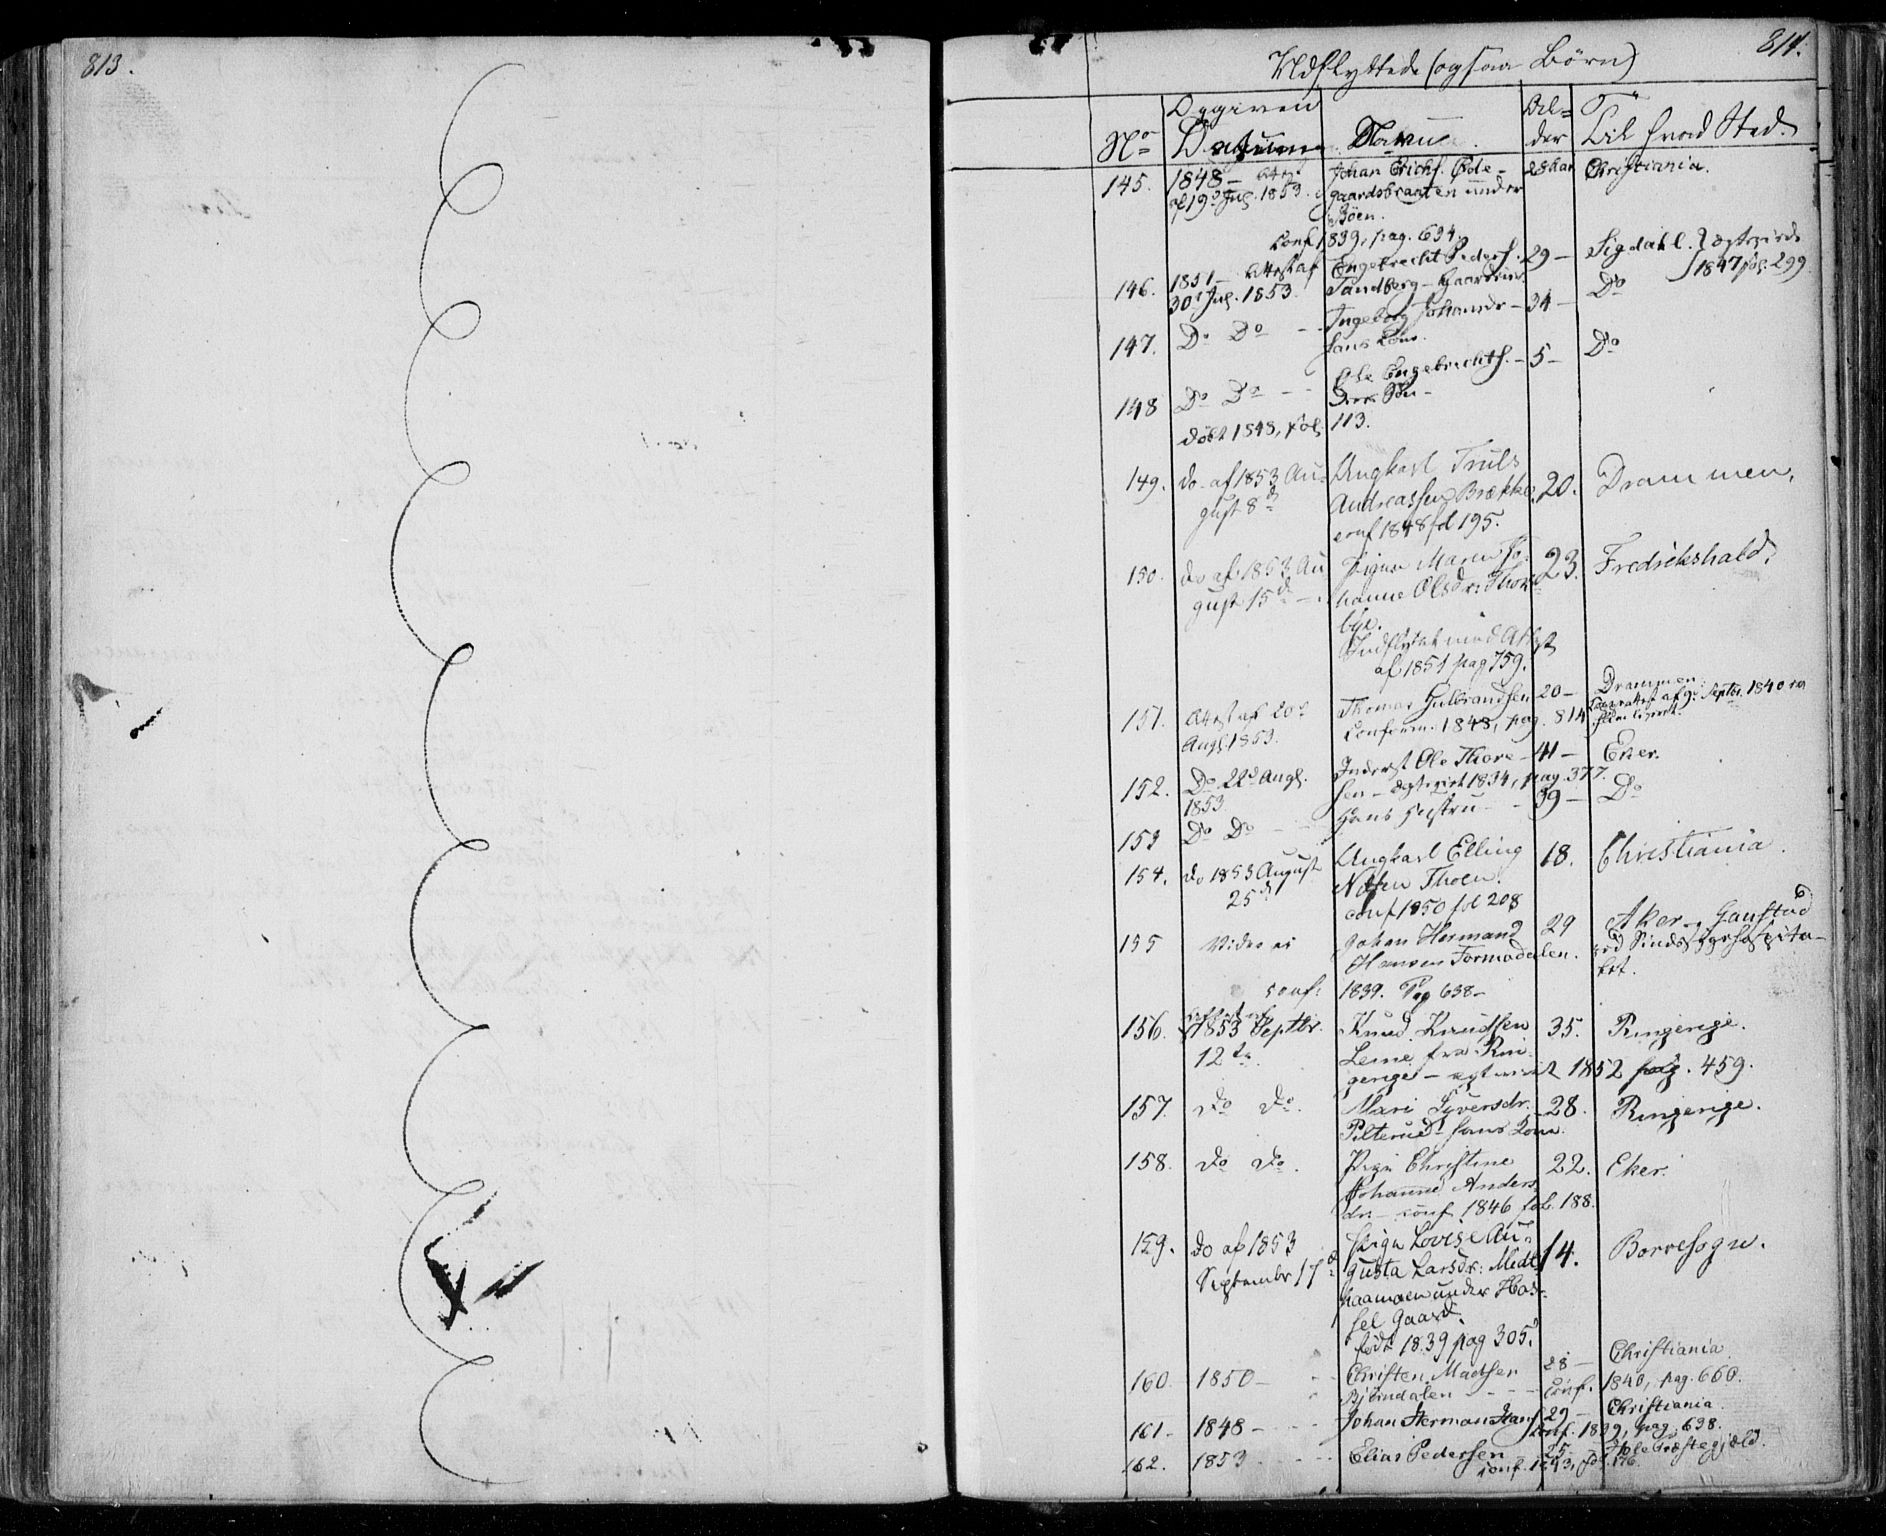 813.
814.
Udflyttede (ogsaa Børn)
No Opgiven Datum. Navne. Alder Til hvad Sted.
145. 1848 – Attest af 19de Jul. 1853. Johan Erichs. Ødegaardsbraaten under Böen. 28 Aar Christiania.
Conf. 1839, pag. 634.
146. 1851 – Attest af 30te Jul. 1853. Engebrecht Peders. Sandberg – Gaardbrug 29 – Sigdahl. Ægteviede 1847 fol. 299
147. Do Do – Ingeborg Johannesdr – hans Kone. 34 – Do
148 Do Do – – Ole Engebrechts. – Deres Søn – 5 – Do
døbt 1848, fol. 113.
149. do af 1853 August 8de Ungkarl Truls Andreassen Brække 20. Drammen.
conf 1848 fol 195.
150. do af 1853 August 15de – Pigen Maren Johanne Olsdr: Thorbye. 23. Fredrikshald.
Indflyttet med Attest af 1851 pag 759.
151. Attest af 20de Aug. 1853. Thomas Gulbrandsen 20 – Drammen.
Conform. 1848, pag. 814 af 9. Septbr. 1840
152. Do 22de Aug. 1853 Inderst Ole Thoresen – ægteviet 1834, pag. 377. 41 – Eker.
153 Do Do – Hans Hustru – 39 – Do
154. do 1853 August 25de Ungkarl Elling Nilsen Thoen. 18. Christiania.
conf. 1850 fol 208
155 Johan Hermand Hansen Formodalen. 29 Aker – Gaustad ved Sindssygehospitalet.
conf: 1839. Pag 638 –
156. Attest af 1853 Septbr. 12te Knud Knudsen Leine fra Ringerige – ægteviet 1852 pag. 459. 35. Ringerige.
157. Do Do. Mari Syversdr. Pilterud hans Kone. 28. Ringerige.
158. Do Do. Pige Christine Johanne Andersdr. – conf 1846 fol. 188. 22. Eker.
159. do af 1853 September 17de Pigen Lovise Augusta Larsdr: under Hassel Gaard. 14. Borresogn.
født 1839 pag 305.
160. 1850 – Christen Madsen Bjørndalen – – – 28 – Christiania
Conf. 1840, pag. 660.
161. 1848 – Johan Herman Hans. 29 – Christiania.
Conf. 1839, pag. 638.
162. 1853 Elias Pedersen 25 – Hole Præstegjæld.
conf. 1843, fol. 176.